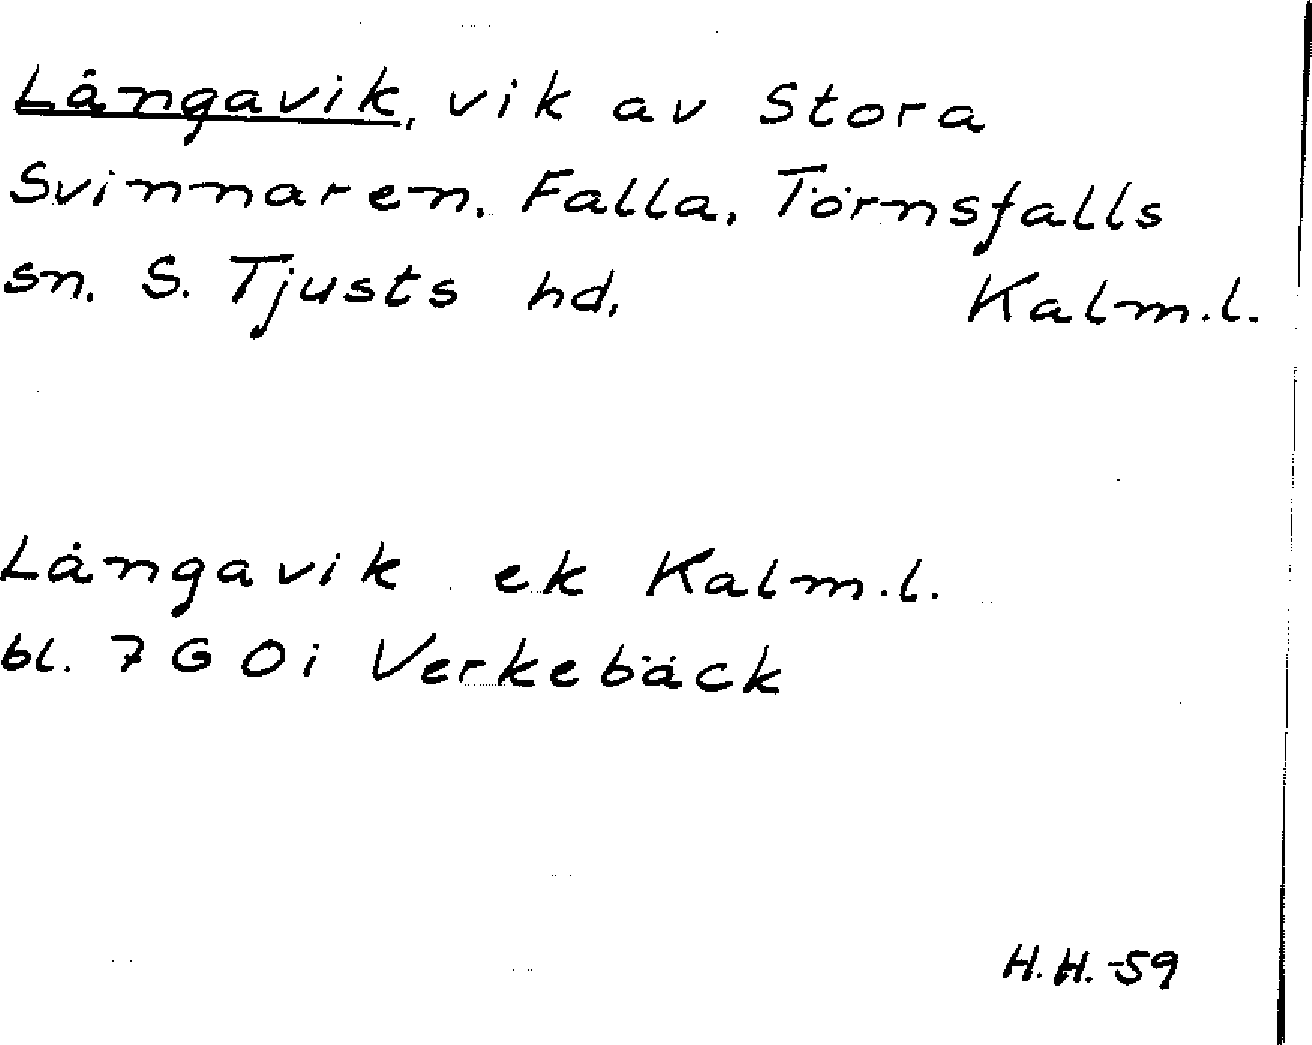 Långavik, vik av Stora
Svinnaren. Falla, Törnsfalls
sn. S. Tjusts hd. Kalm.l.
Långavik ek Kalm.l.
bl. 7 G 0 i Verkebäck
H.H.-59